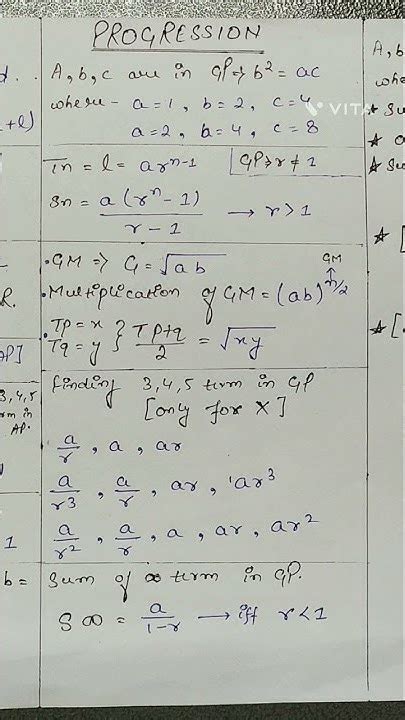 PROGRESSION
A, b, c are in GP → b² = ac
where - a = 1, b = 2, c = 4
a = 2, b = 4, c = 8
Tn = l = arⁿ⁻¹ | GP → r ≠ 1
Sn = a(rⁿ - 1) / r - 1 → r > 1
• GM ⇒ G = √ab
GM
• Multiplication of GM = (ab)^n/2
• Tp = x
Tq = y } Tp+q / 2 = √xy
finding 3,4,5 term in GP
[only for X]
a/r, a, ar
a/r³, a/r, ar, ar³
a/r², a/r, a, ar, ar²
Sum of ∞ term in GP.
S∞ = a/1-r → iff r < 1
d..
+l)
R.
AP]
3,4,5
rm in
AP.
1
b =
A, b
whe
★ Su
★ a
★ Su
★ [
★ [.
VITA